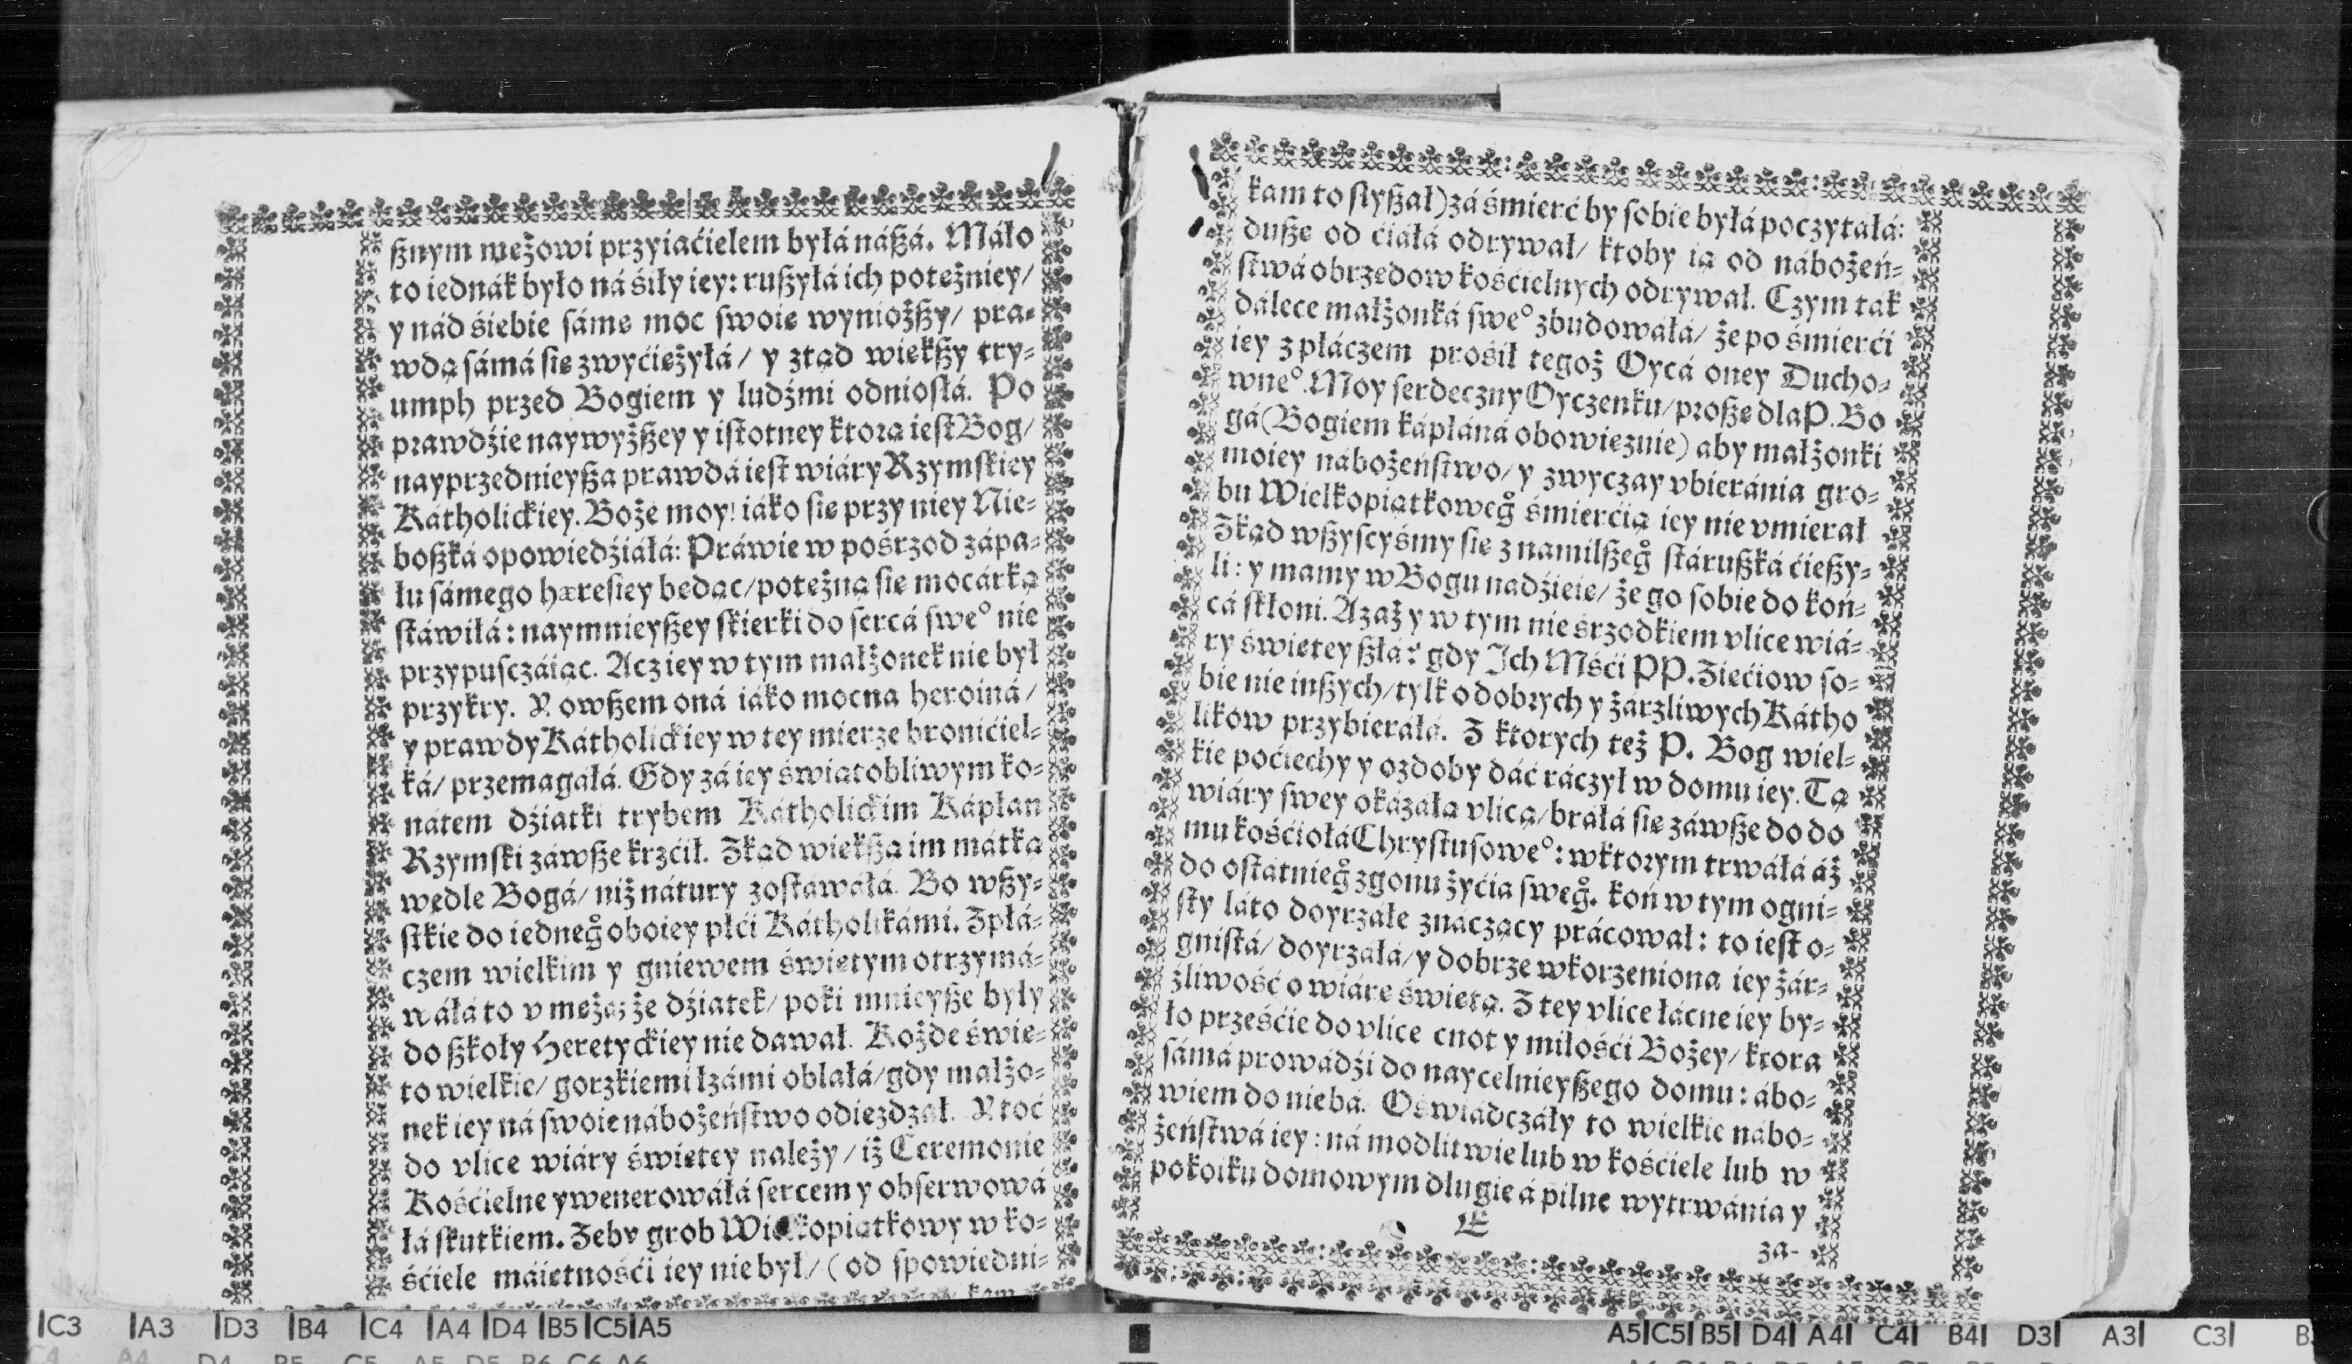 ßnym mężowi przyiaćielem byłá náßá. Máło
to iednák było ná śiły iey: rußyłá ich potężniey/
y nád śiebie sámę moc swoię wyniożßy/ pra-
wdą sámá się zwyćiężyłá/ y ztąd więkßy try-
umph przed Bogiem y ludźmi odniosłá. Po
prawdźie naywyżßey y istotney ktora iest Bog/
nayprzednieyßa prawdá iest wiáry Rzymskiey
Kátholickiey. Boże moy! iáko się przy niey Nie-
boßká opowiedźiáłá: Práwie w pośrzod zápa-
łu sámego hæresiey będąc/ potężną się mocárką
stáwiłá: naymnieyßey skierki do sercá swe° nie
przypusczáiąc. Acz iey w tym małżonek nie był
przykry. Y owßem oná iáko mocna heroiná/
y prawdy Kátholickiey w tey mierze bronićiel-
ká/ przemagáłá. Gdy zá iey świątobliwym ko-
nátem dźiatki trybem Kátholickim Kápłan
Rzymski záwße krzćił. Zkąd więkßą im mátką
wedle Bogá/ niż nátury zostawáłá. Bo wßy-
stkie do iedneg° oboiey płći Kátholikámi. Z płá-
czem wielkim y gniewem świętym otrzymá-
wáłá to v mężá; że dźiatek/ poki mnieyße były
do ßkoły Heretyckiey nie dawał. Kożde świę-
to wielkie/ gorzkiemi łzámi oblałá/ gdy małżo-
nek iey ná swoie nábożeństwo odieżdzał. Y toć
do vlice wiáry świętey należy/ iż Ceremonie
Kośćielne y wenerowáłá sercem y obserwowá
łá skutkiem. Żeby grob Wielkopiątkowy w ko-
śćiele máiętnośći iey nie był/ (od spowiedni-
kam
kam to słyßał) zá śmierć by sobie byłá poczytáłá:
dußę od ćiáłá odrywał/ ktoby ią od nábożeń-
stwá obrzędow kośćielnych odrywał. Czym ták
dálece małżonká swe° zbudowáłá/ że po śmierći
iey z płáczem prośił tegoż Oycá oney Ducho-
wne°. Moy serdeczny Oyczeńku/ proßę dla P. Bo
gá (Bogiem kápłáná obowięzuie) aby małżonki
moiey nábożeństwo/ y zwyczay vbieránia gro-
bu Wielkopiątkoweg° śmierćią iey nie vmierał
Zkąd wßyscyśmy się z namilßeg° stárußká ćießy-
li: y mamy w Bogu nadźieię/ że go sobie do koń-
cá skłoni. Azaż y w tym nie śrzodkiem vlice wiá-
ry świętey ßłá? gdy Ich Mśći PP. Zięćiow so-
bie nie inßych/ tylko dobrych y żarzliwych Kátho
likow przybieráłá. Z ktorych też P. Bog wiel-
kie poćiechy y ozdoby dáć ráczył w domu iey. Tą
wiáry swey okázałą vlicą/ bráłá się záwße do do
mu kośćiołá Chrystusowe°: w ktorym trwáłá áż
do ostátnieg° zgonu żyćia sweg°. koń w tym ogni-
sty láto doyrzáłe znáczący prácował: to iest o-
gnistá/ doyrzáła/ y dobrze wkorzeniona iey żár-
żliwość o wiárę świętą. Z tey vlice łácne iey by-
ło prześćie do vlice cnot y miłośći Bożey/ ktora
sámá prowádźi do naycelnieyßego domu: ábo-
wiem do niebá. Oświádczáły to wielkie nábo-
żeństwá iey: ná modlitwie lub w kośćiele lub w
pokoiku domowym długie á pilne wytrwánia y
E
za-